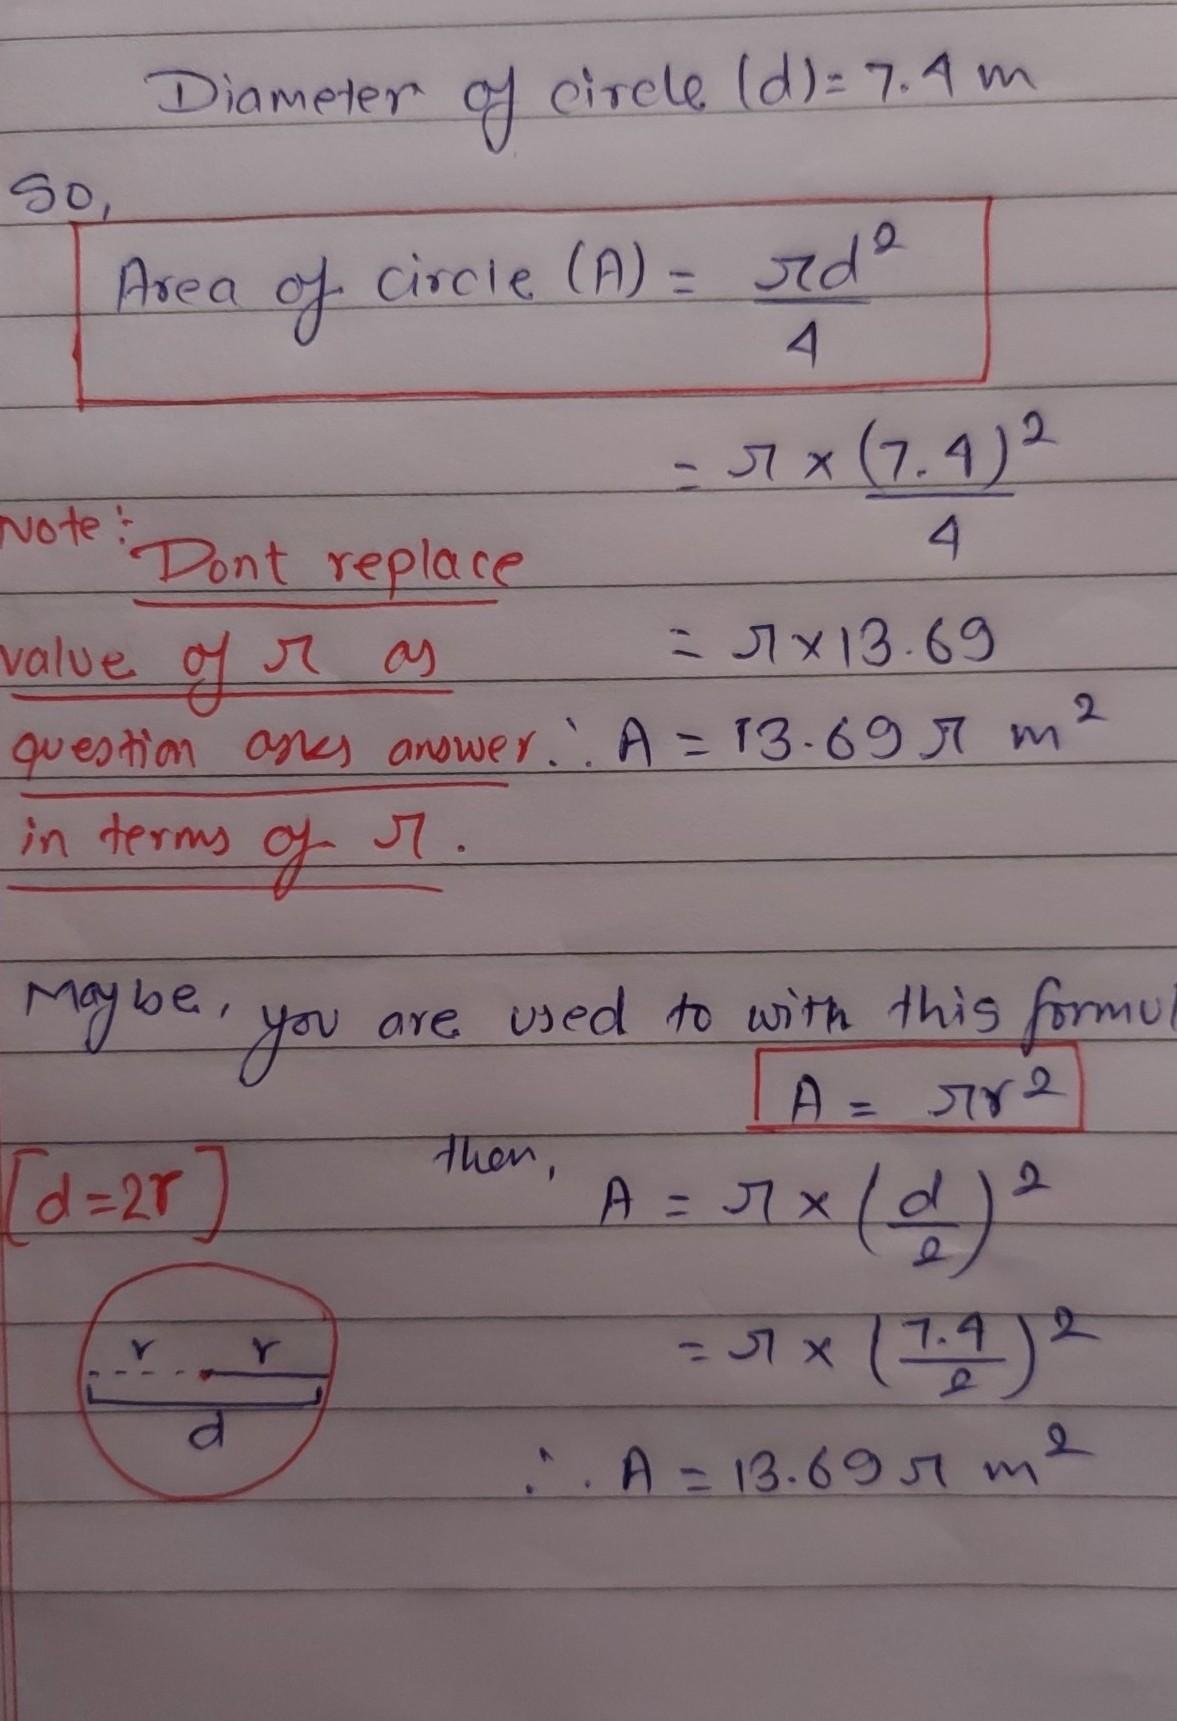 Diameter of circle (d) = 7.4 m
So,
Area of circle (A) = πd²/4
= π × (7.4)²/4
Note: Dont replace
value of π as
question asks answer
in terms of π.
= π × 13.69
∴ A = 13.69 π m²
Maybe, you are used to with this formul
A = πr²
[d=2r]
then,
A = π × (d/2)²
= π × (7.4/2)²
∴ A = 13.69 π m²
r r
d